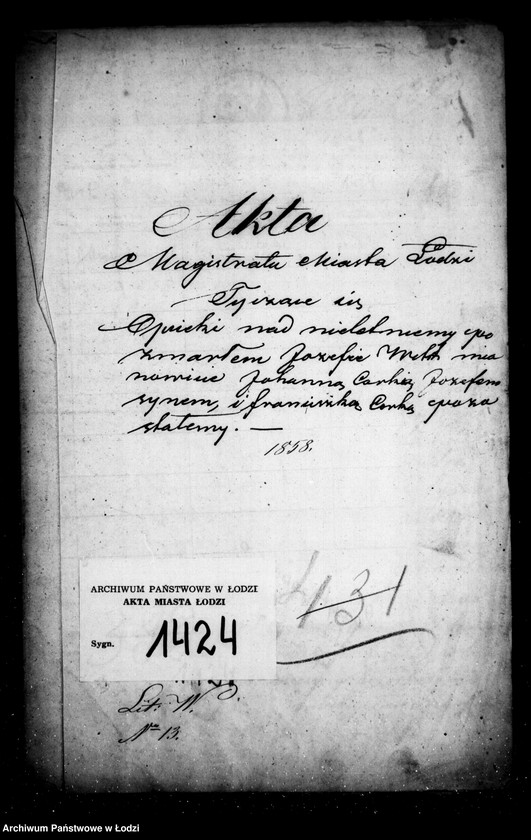 Akta
Magistratu Miasta Łodzi
Tyczące się
Opieki nad nieletniemy po
zmarłem Jozefie
nowicie Johanną Corką Jozefem
synem, i franciszką Corką pozo
stałemy. —
1858.
431
ARCHIWUM PAŃSTWOWE W ŁODZI
AKTA MIASTA ŁODZI
Sygn. 1424
Lit: W.
No 13.
Archiwum Państwowe w Łodzi